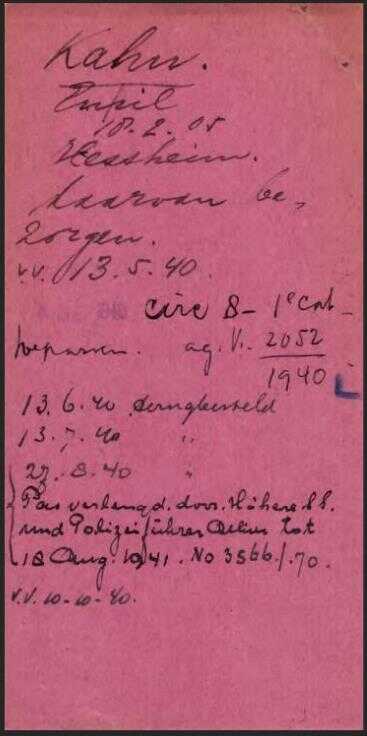 Kahn.
Emil
18.2.05
Hessheim.
daarvan be-
zorgen.
v.v. 13.5.40.
circ 8- 1e cat-
toepassen. ag. V. 2052
1940 L
13.6.40
13.7.40 "
27.8.40 "
Pas verlengd. door. Höhere SS.
und Polizeiführer tot
18 Aug. 1941. No 3566./.70.
v.v. 10-10-40.